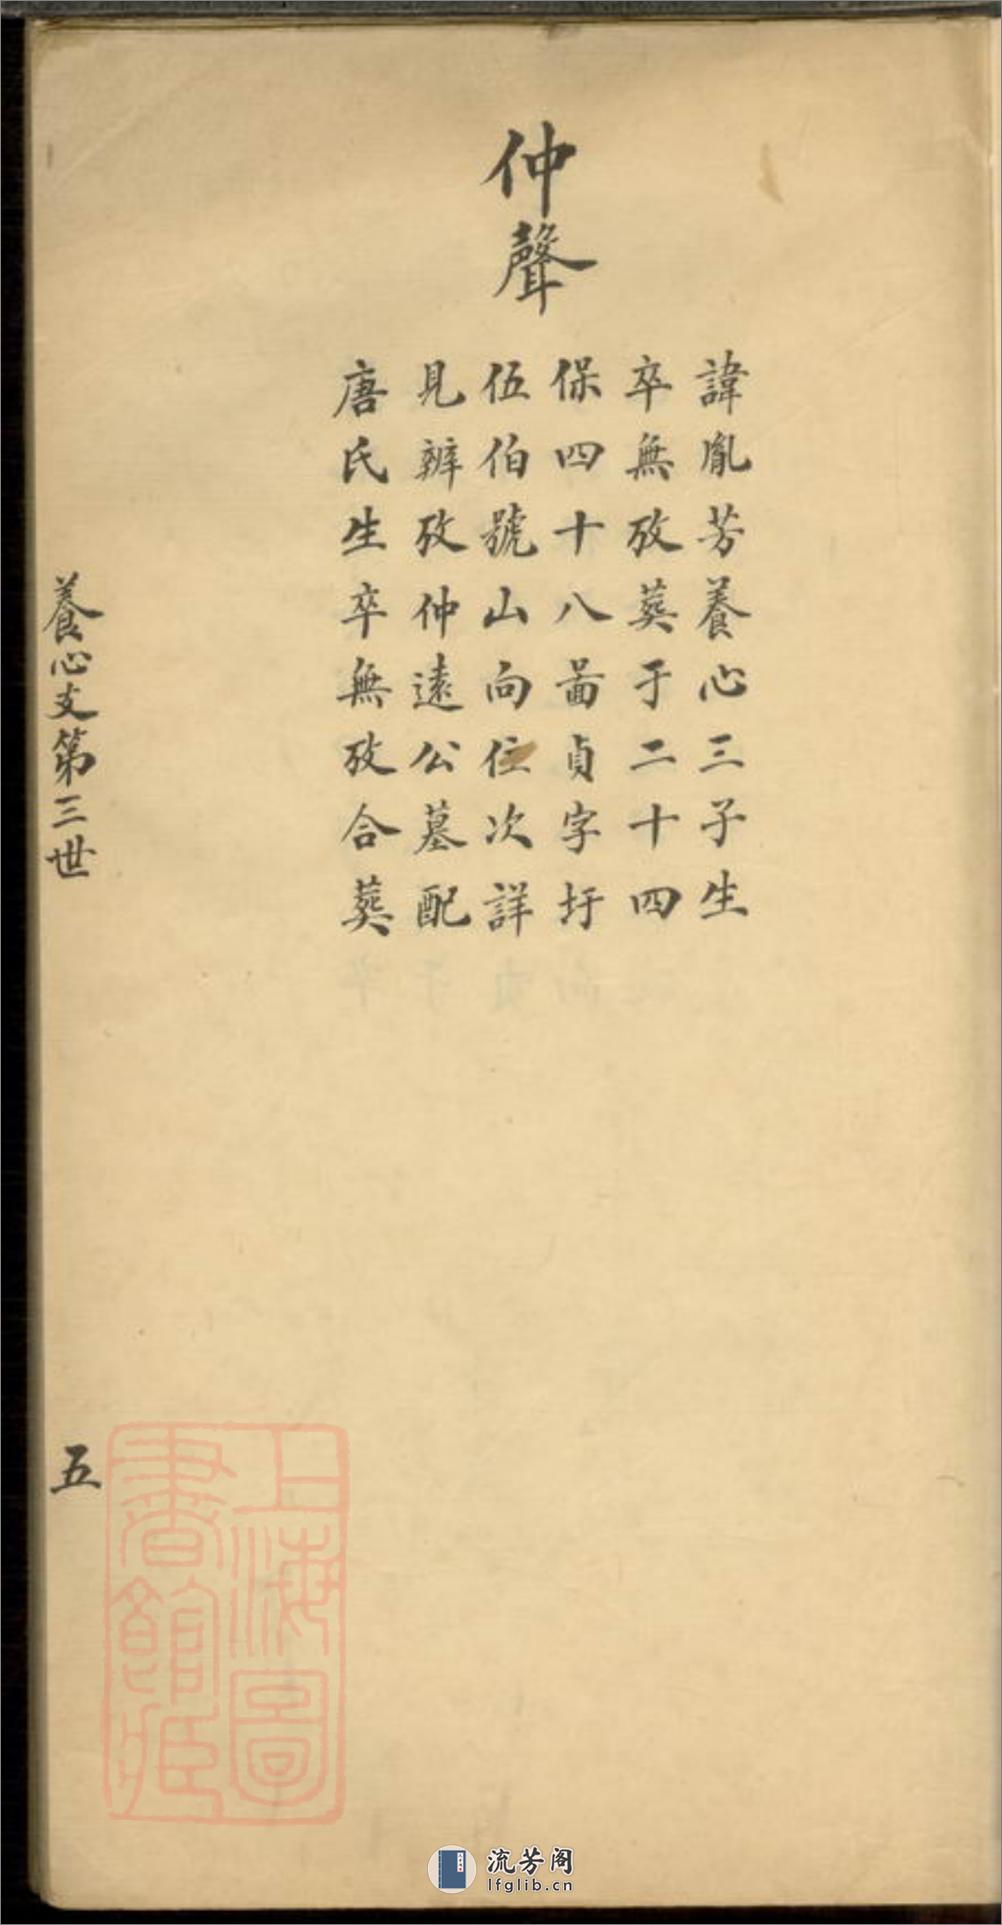 仲聲
諱胤芳養心三子生
卒無攷葬于二十四
保四十八啚貞字圩
伍伯號山向位次詳
見辦攷仲遠公墓配
唐氏生卒無攷合葬
養心支第三世
五
上海圖
書館藏
流芳阁
lfglib.cn